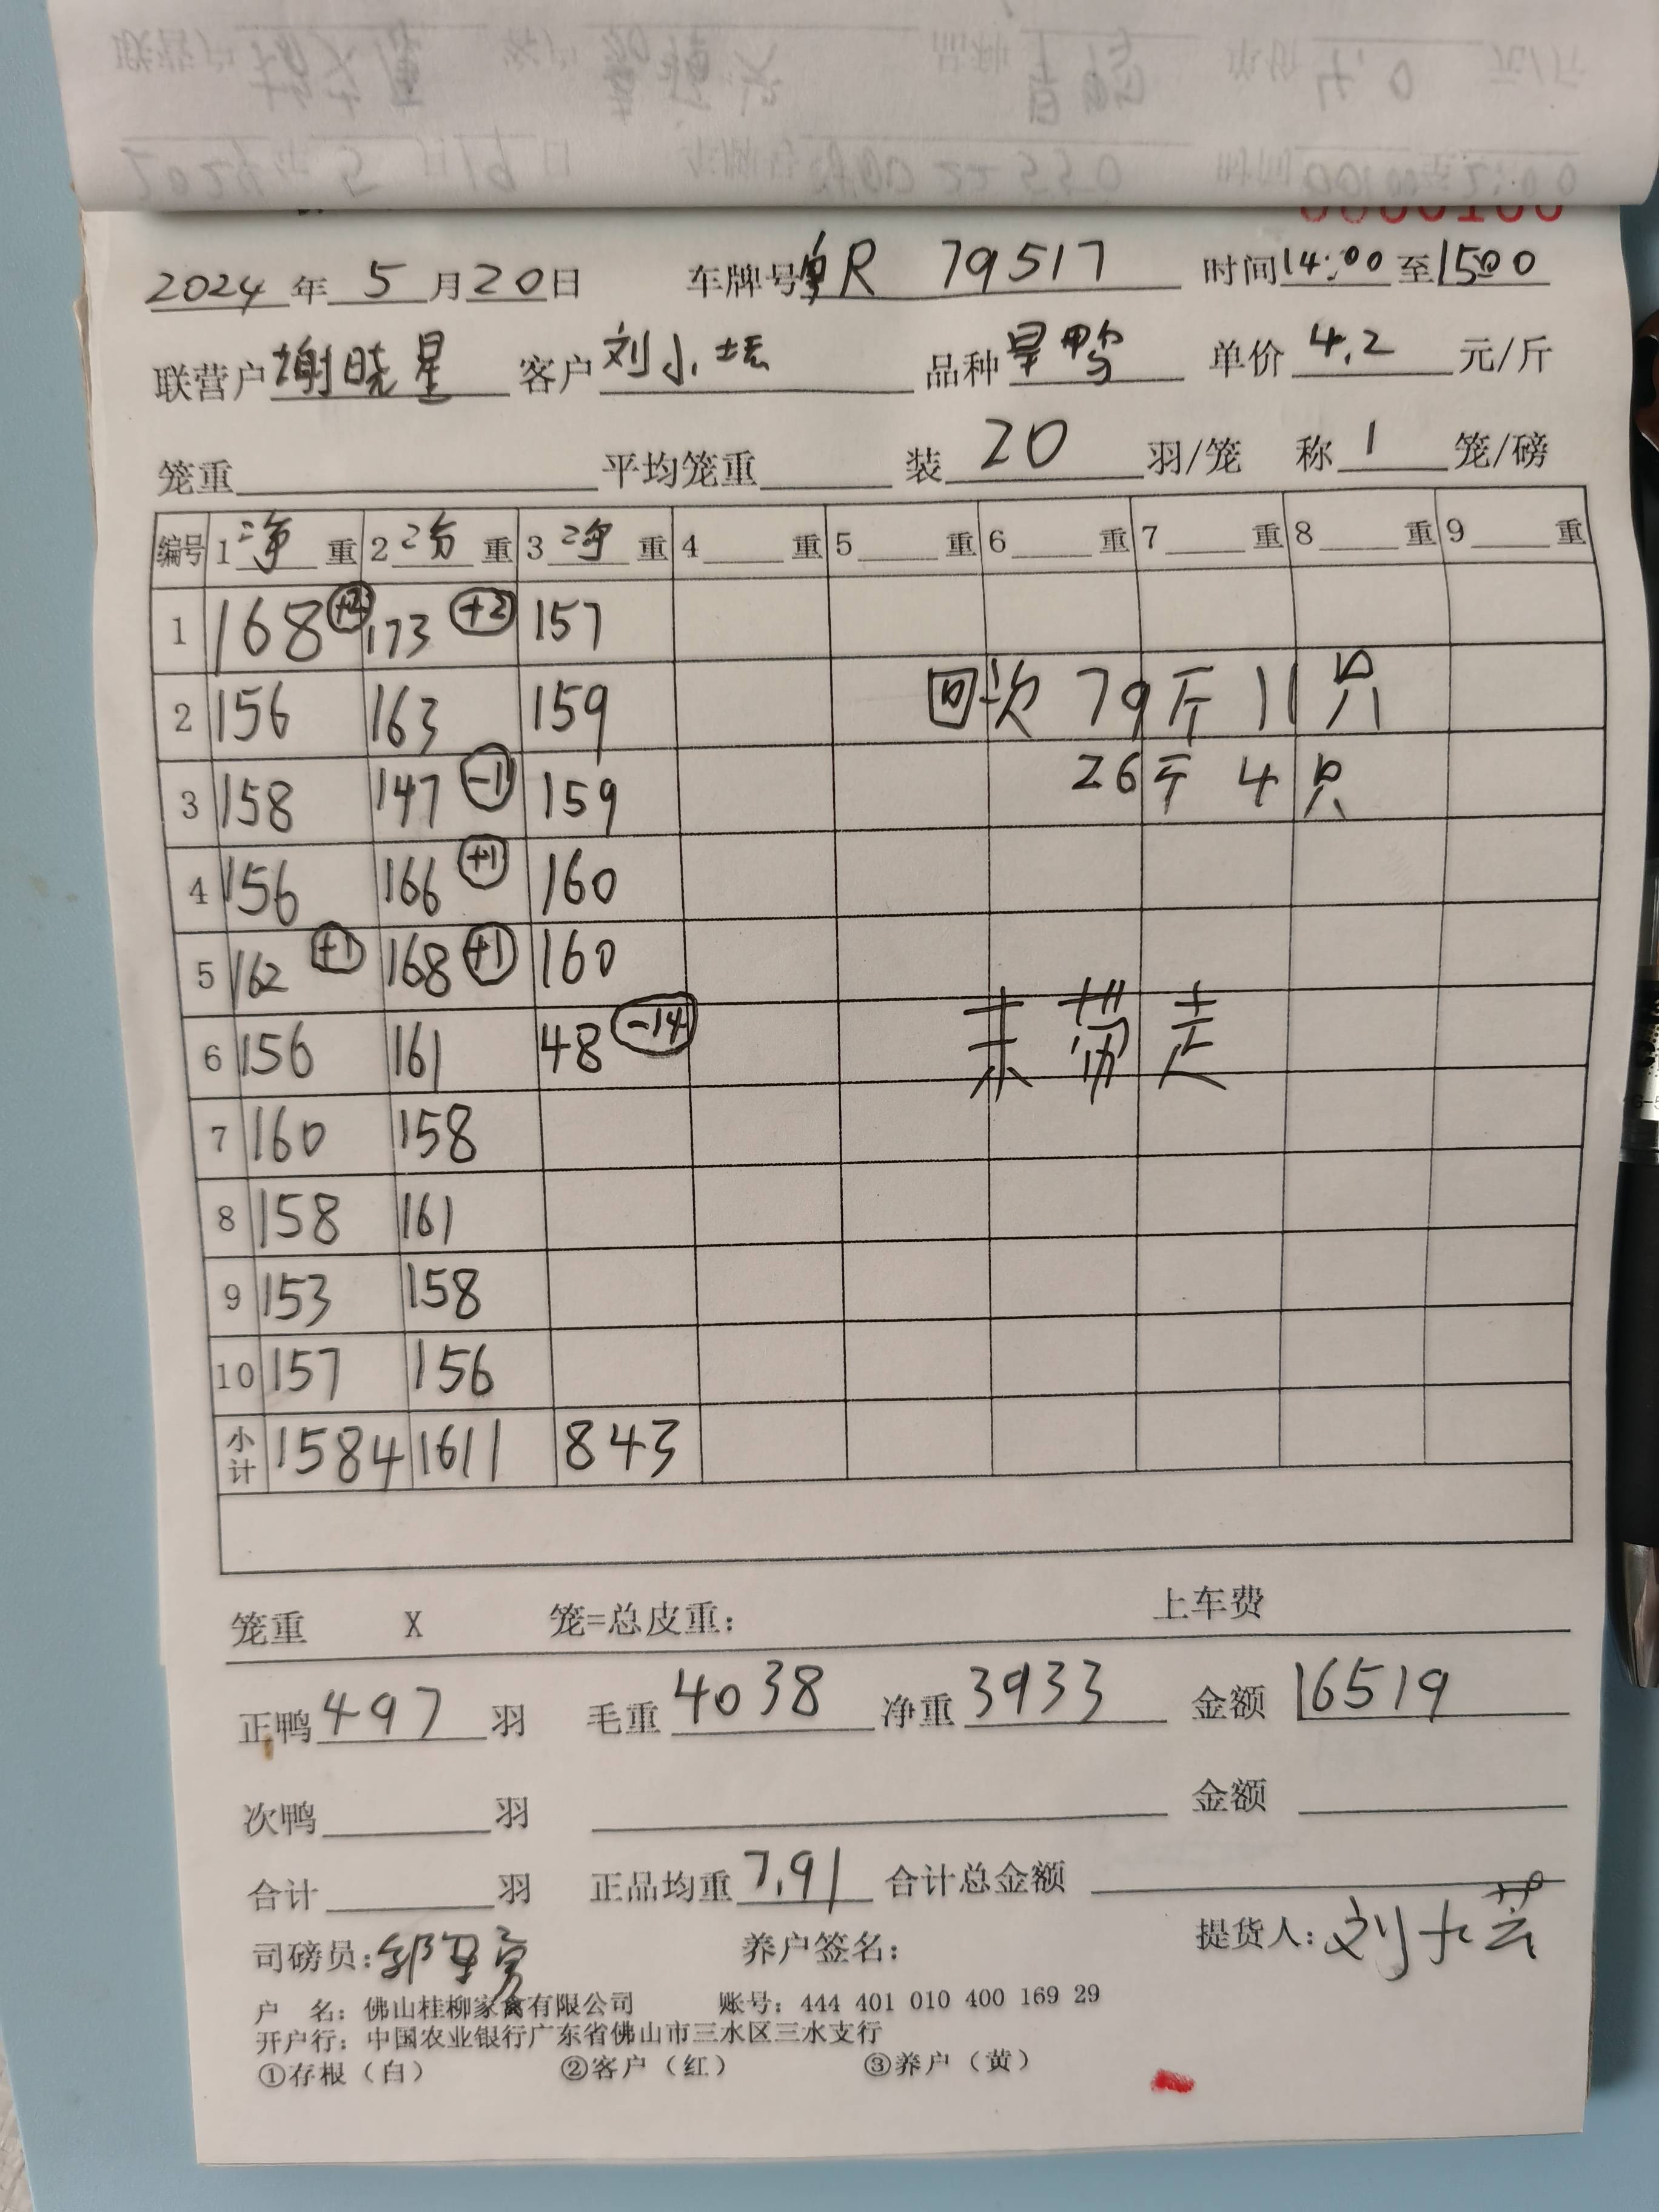 2024年5月20日 车牌号粤R 79517 时间14:00至15:00
联营户谢晓星 客户刘小坛 品种旱鸭 单价4.2元/斤
笼重 平均笼重 装20羽/笼 称1笼/磅
编号 1净重 2净重 3净重 4重 5重 6重 7重 8重 9重
1 168 +2 173 +2 157
2 156 163 159 回次 79斤 11只
3 158 147 -1 159 26斤 4只
4 156 166 +1 160
5 162 +1 168 +1 160
6 156 161 48 -14 未带走
7 160 158
8 158 161
9 153 158
10 157 156
小计 1584 1611 843
笼重 X 笼=总皮重: 上车费
正鸭497羽 毛重4038 净重3933 金额16519
次鸭 羽 金额
合计 羽 正品均重7.91 合计总金额
司磅员: 养户签名: 提货人:刘大芸
户 名: 佛山桂柳家禽有限公司 账号: 444 401 010 400 169 29
开户行: 中国农业银行广东省佛山市三水区三水支行
①存根(白) ②客户(红) ③养户(黄)